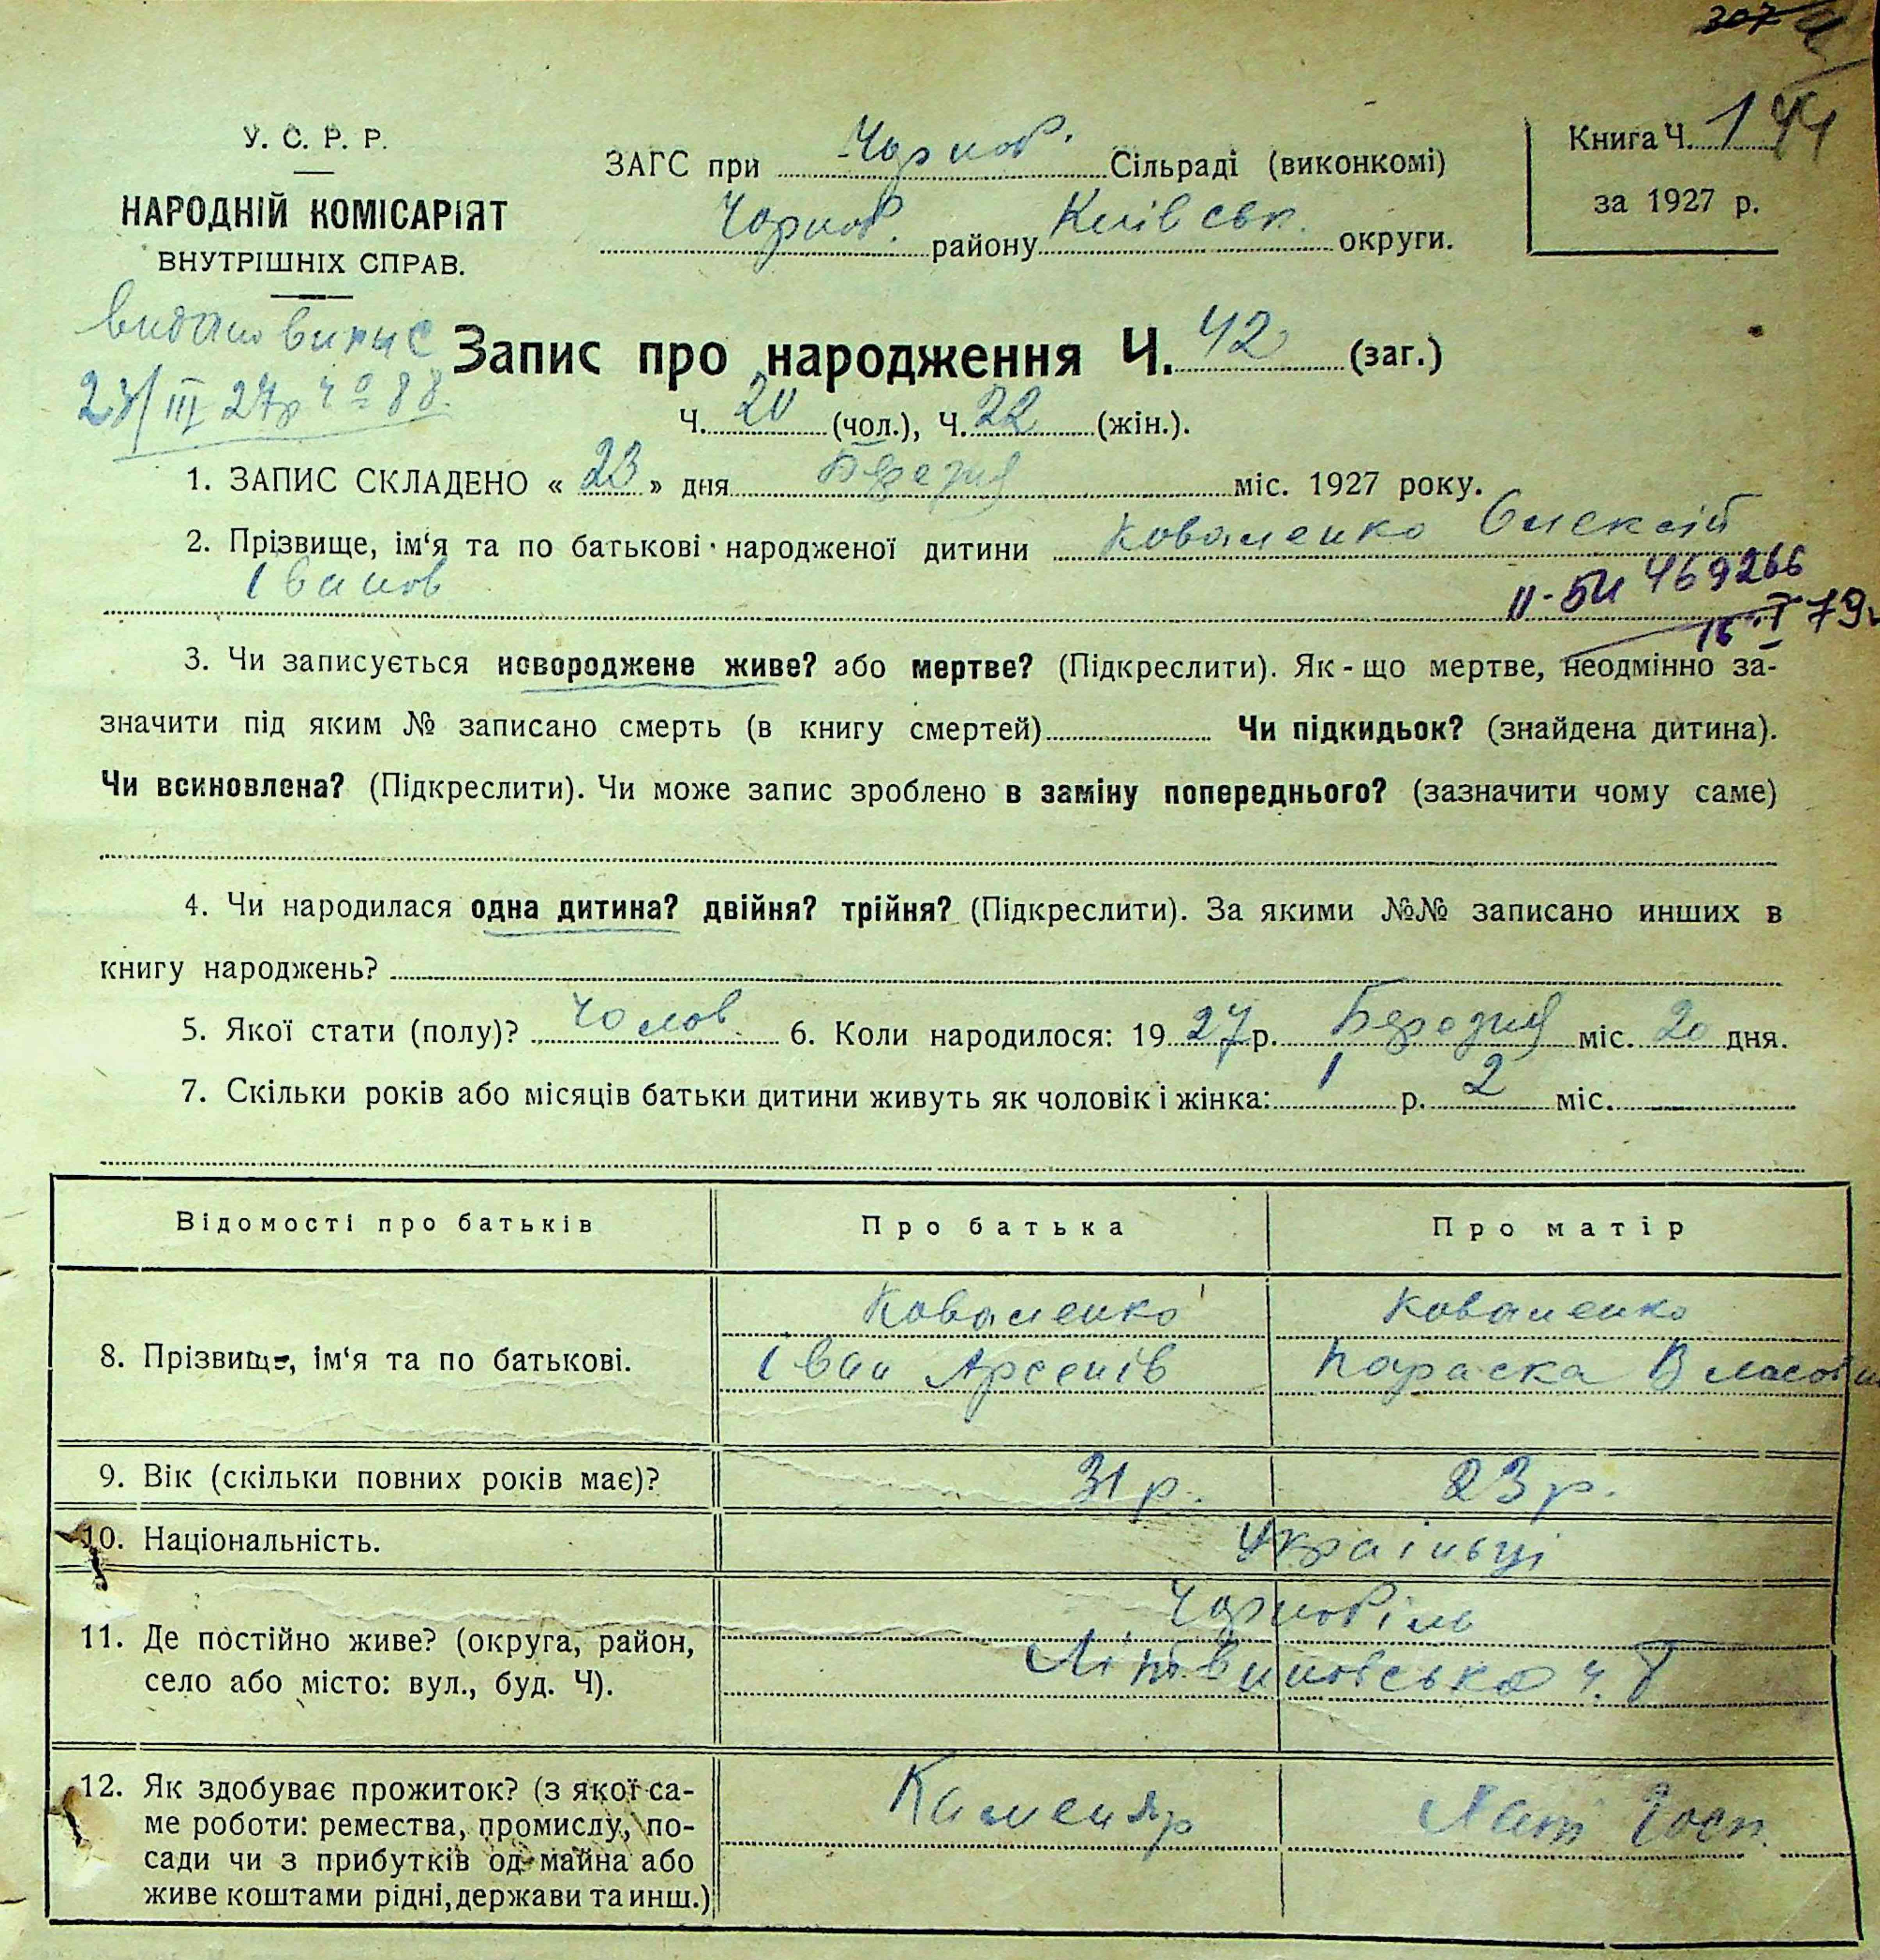 307
У. С. Р. Р.
НАРОДНІЙ КОМІСАРІЯТ
ВНУТРІШНІХ СПРАВ.
ЗАГС при Чорноб. Сільраді (виконкомі)
Чорноб. району Київськ. округи.
Книга Ч. 1 44
за 1927 р.
видано випис
23/III 27р ч о 88.
Запис про народження Ч. 42 (заг.)
Ч. 20 (чол.), Ч. 22 (жін.).
1. ЗАПИС СКЛАДЕНО « 23 » дня Березня міс. 1927 року.
2. Прізвище, ім‘я та по батькові народженої дитини Коваленко Олексій
Іванов
II-БИ 469266
16 I 79
3. Чи записується новороджене живе? або мертве? (Підкреслити). Як-що мертве, неодмінно за-
значити під яким № записано смерть (в книгу смертей) Чи підкидьок? (знайдена дитина).
Чи всиновлена? (Підкреслити). Чи може запис зроблено в заміну попереднього? (зазначити чому саме)
4. Чи народилася одна дитина? двійня? трійня? (Підкреслити). За якими №№ записано инших в
книгу народжень?
5. Якої стати (полу)? Чолов. 6. Коли народилося: 19 27 р. Березня міс. 20 дня.
7. Скільки років або місяців батьки дитини живуть як чоловік і жінка: 1 р. 2 міс.
Відомості про батьків Про батька Про матір
8. Прізвище, ім‘я та по батькові.
Коваленко Коваленко
Іван Арсенів Параска Власов
9. Вік (скільки повних років має)? 31 р. 23 р.
10. Національність. Українці
11. Де постійно живе? (округа, район,
село або місто: вул., буд. Ч).
Чорнобіль
Літвиновська ч.
12. Як здобуває прожиток? (з якої са-
ме роботи: ремества, промислу, по-
сади чи з прибутків од майна або
живе коштами рідні, держави та инш.)
Каменяр Хат Госп.